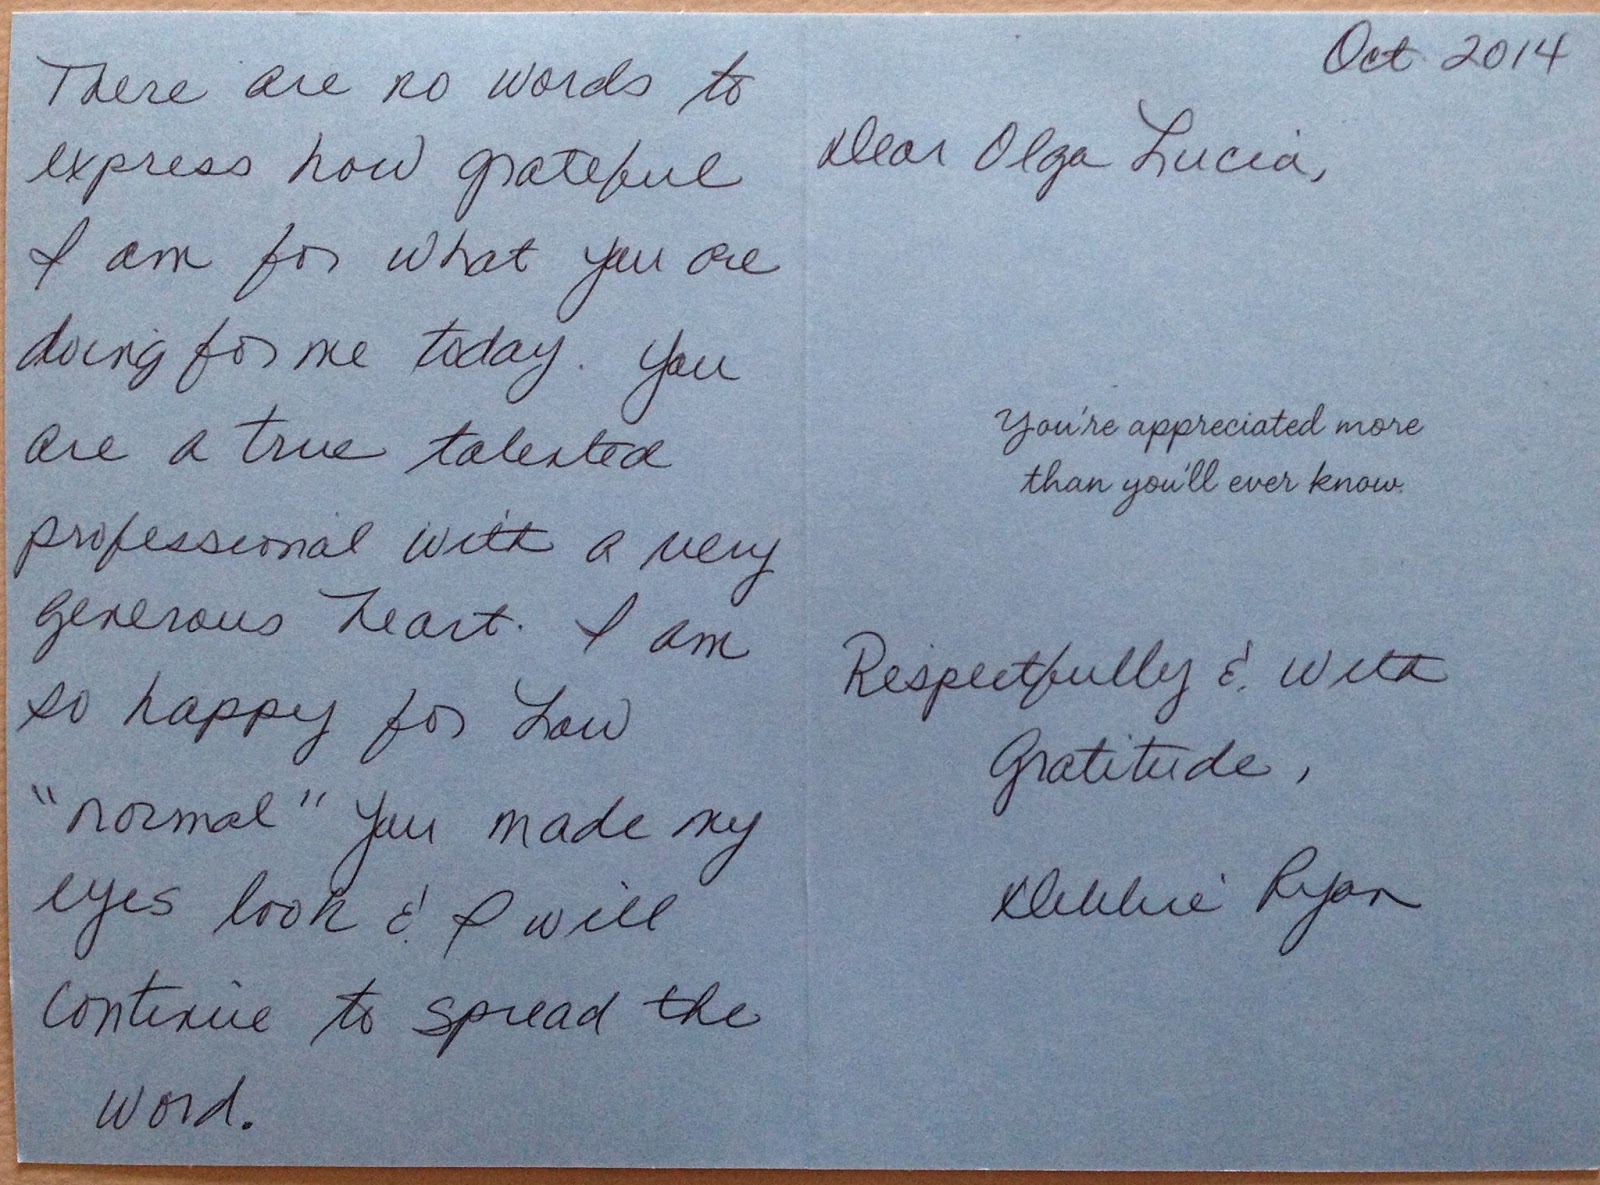 There are no words to
express how grateful
I am for what you are
doing for me today. You
are a true talented
professional with a very
generous heart. I am
so happy for how
"normal" you made my
eyes look & I will
continue to spread the
word.
Oct 2014
Dear Olga Lucia,
You're appreciated more
than you'll ever know.
Respectfully & with
Gratitude,
Debbie Ryan